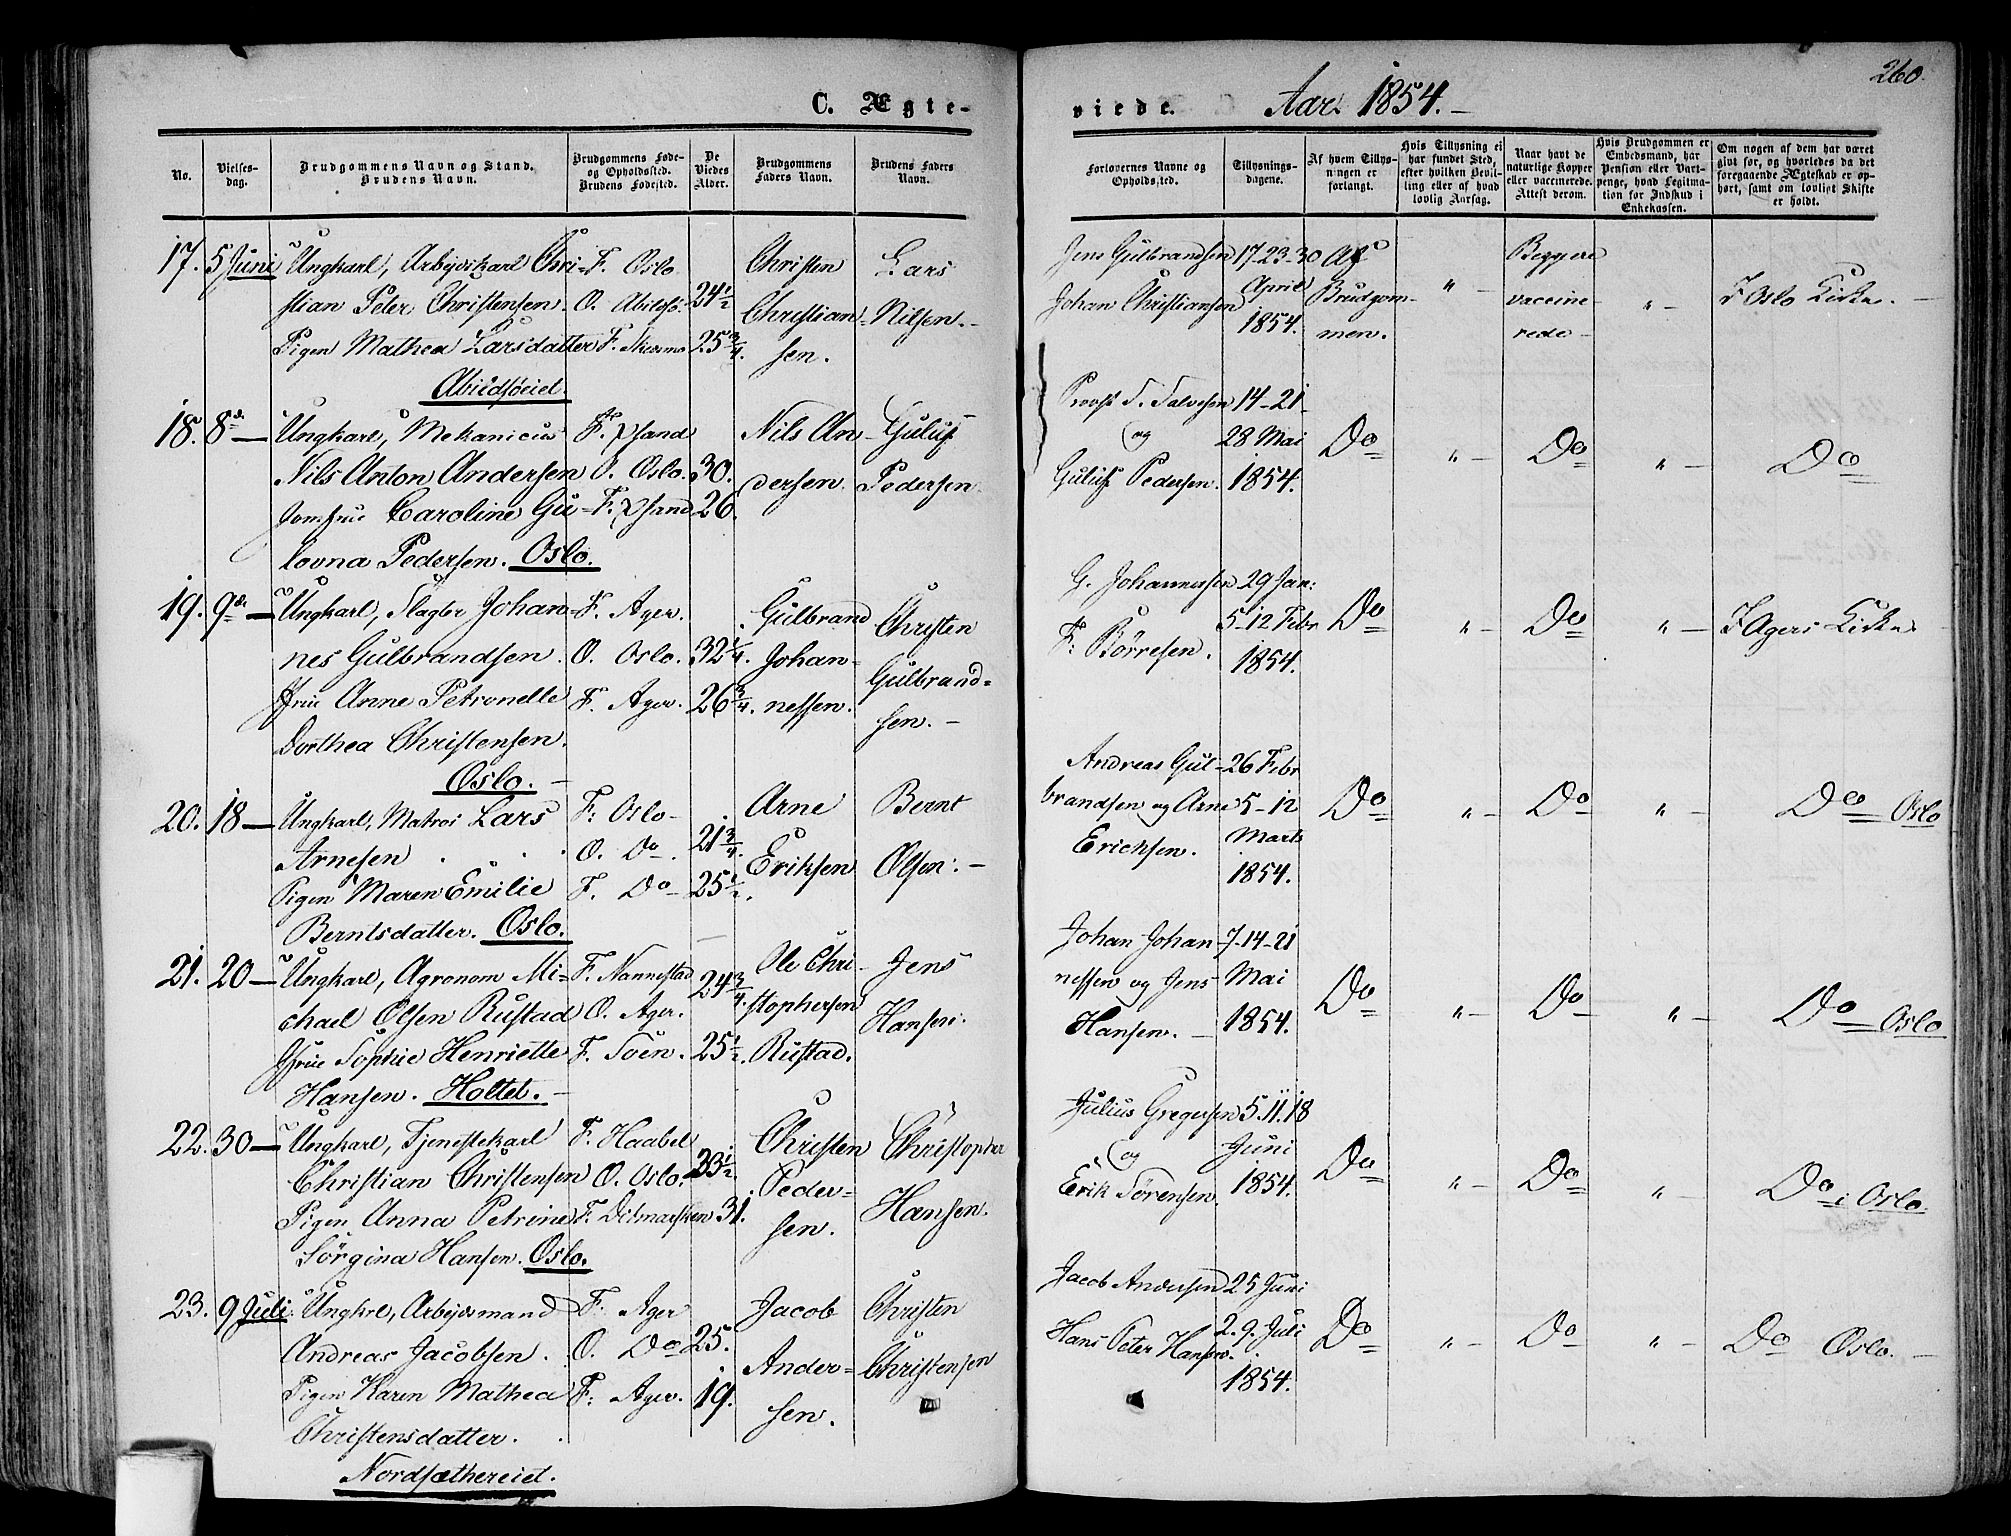 260.
C. Ægte-
viede.
Aar 1854.-
No.
Vielses-
dag.
Brudgommens Navn og Stand.
Brudens Navn.
Brudgommens Føde-
og Opholdssted.
Brudens Fødested.
De
Viedes
Alder.
Brudgommens
Faders Navn.
Brudens Faders
Navn.
Forlovernes Navne og
Opholdssted.
Tillysnings-
dagene.
Af hvem Tillys-
ningen er
forlangt.
Hvis Tillysning ei
har fundet Sted,
efter hvilken Bevil-
ling eller af hvad
lovlig Aarsag.
Naar havt de
naturlige Kopper
eller vaccinerede.
Attest derom.
Hvis Brudgommen er
Embedsmand, har
Pension eller Vart-
penge, hvad Legitma-
tion for Indskud i
Enkekassen.
Om nogen af dem har været
givt før, og hvorledes da det
foregaaende Ægteskab er op-
hørt, samt om lovligt Skifte
er holdt.
17. 5 Juni Ungkarl, Arbejdskarl Chri- F. Oslo Christen Lars
stian Peter Christensen. O. Abildsø. 24 1/2 Christian- Nilsen.-
Pigen Mathea Larsdatter F. 25 3/4. sen.
Abildsøeiet.
Jens Gulbrandsen 17-23-30 Af Begge
Johan Christiansen April Brudgom- " - vaccine- " - I Oslo Kirke. -
1854. men. rede -
18. 8de - Ungkarl, Mekanicus F. Xsand Nils An- Guluf
Nils Anton Andersen O. Oslo. 30. dersen. Pedersen.
Jomfrue Caroline Gu- F. Xsand 26.
lovna Pedersen. Oslo.
Provst S. Salvesen 14-21-
og 28 Mai Do " - Do " - Do
Guluf Pedersen. 1854.
19. 9de - Ungkarl, Slagter Johan- F. Ager. Gulbrand Christen
nes Gulbrandsen. O. Oslo. 32 1/4. Johan- Gulbrand-
Jfrue Anne Petronelle F. Ager. 26 3/4. nessen. sen. -
Dorthea Christensen.
Oslo. -
G. Johannessen 29 Jan:
5-12 Febr Do " - Do " - I Agers Kirke
F: Børresen. 1854.
20. 18 - Ungkarl, Matros Lars F: Oslo - Arne Bernt
Arnesen . . . O. Do -. 21 3/4. Eriksen Olsen. -
Pigen Maren Emilie F. Do - 25 1/2.
Berntsdatter. Oslo.
Andreas Gul- 26 Febr
brandsen og Arne 5-12 Do " - Do " - Do Oslo
Ericksen. Marts
1854.
21. 20 - Ungkarl, Agronom Mi- F. Nannestad Ole Chri- Jens
chael Olsen Rustad O. Ager. 24 3/4. stophersen Hansen.
Jfrue Sophie Henriette F. Soen. 25 1/2. Rustad.
Hansen. Holtet. -
Johan Johan- 7-14-21
nessen og Jens Mai Do " - Do " - Do Oslo
Hansen. - 1854.
22. 30 - Ungkarl, Tjenestekarl F. Haabel Christen Christopher
Christian Christensen O. Oslo. 33 1/2 Peder- Hansen.
Pigen Anna Petrine F. Ditmarsken 31. sen.
Sörgina Hansen. Oslo.
Julius Gregersen 5.11.18
og Juni Do " - Do " - Do i Oslo.
Erik Sörensen. 1854.
23. 9 Juli. Ungkrl, Arbejdsmand F: Ager Jacob Christen
Andreas Jacobsen. O. Do 25. Ander- Christensen
Pigen Karen Mathea F: Ager. 19. sen.
Christensdatter.
Nordsæthereiet.
Jacob Andersen 25 Juni
Hans Peter Hansen. 2. 9. Juli Do " - Do " - Do Oslo. -
1854.